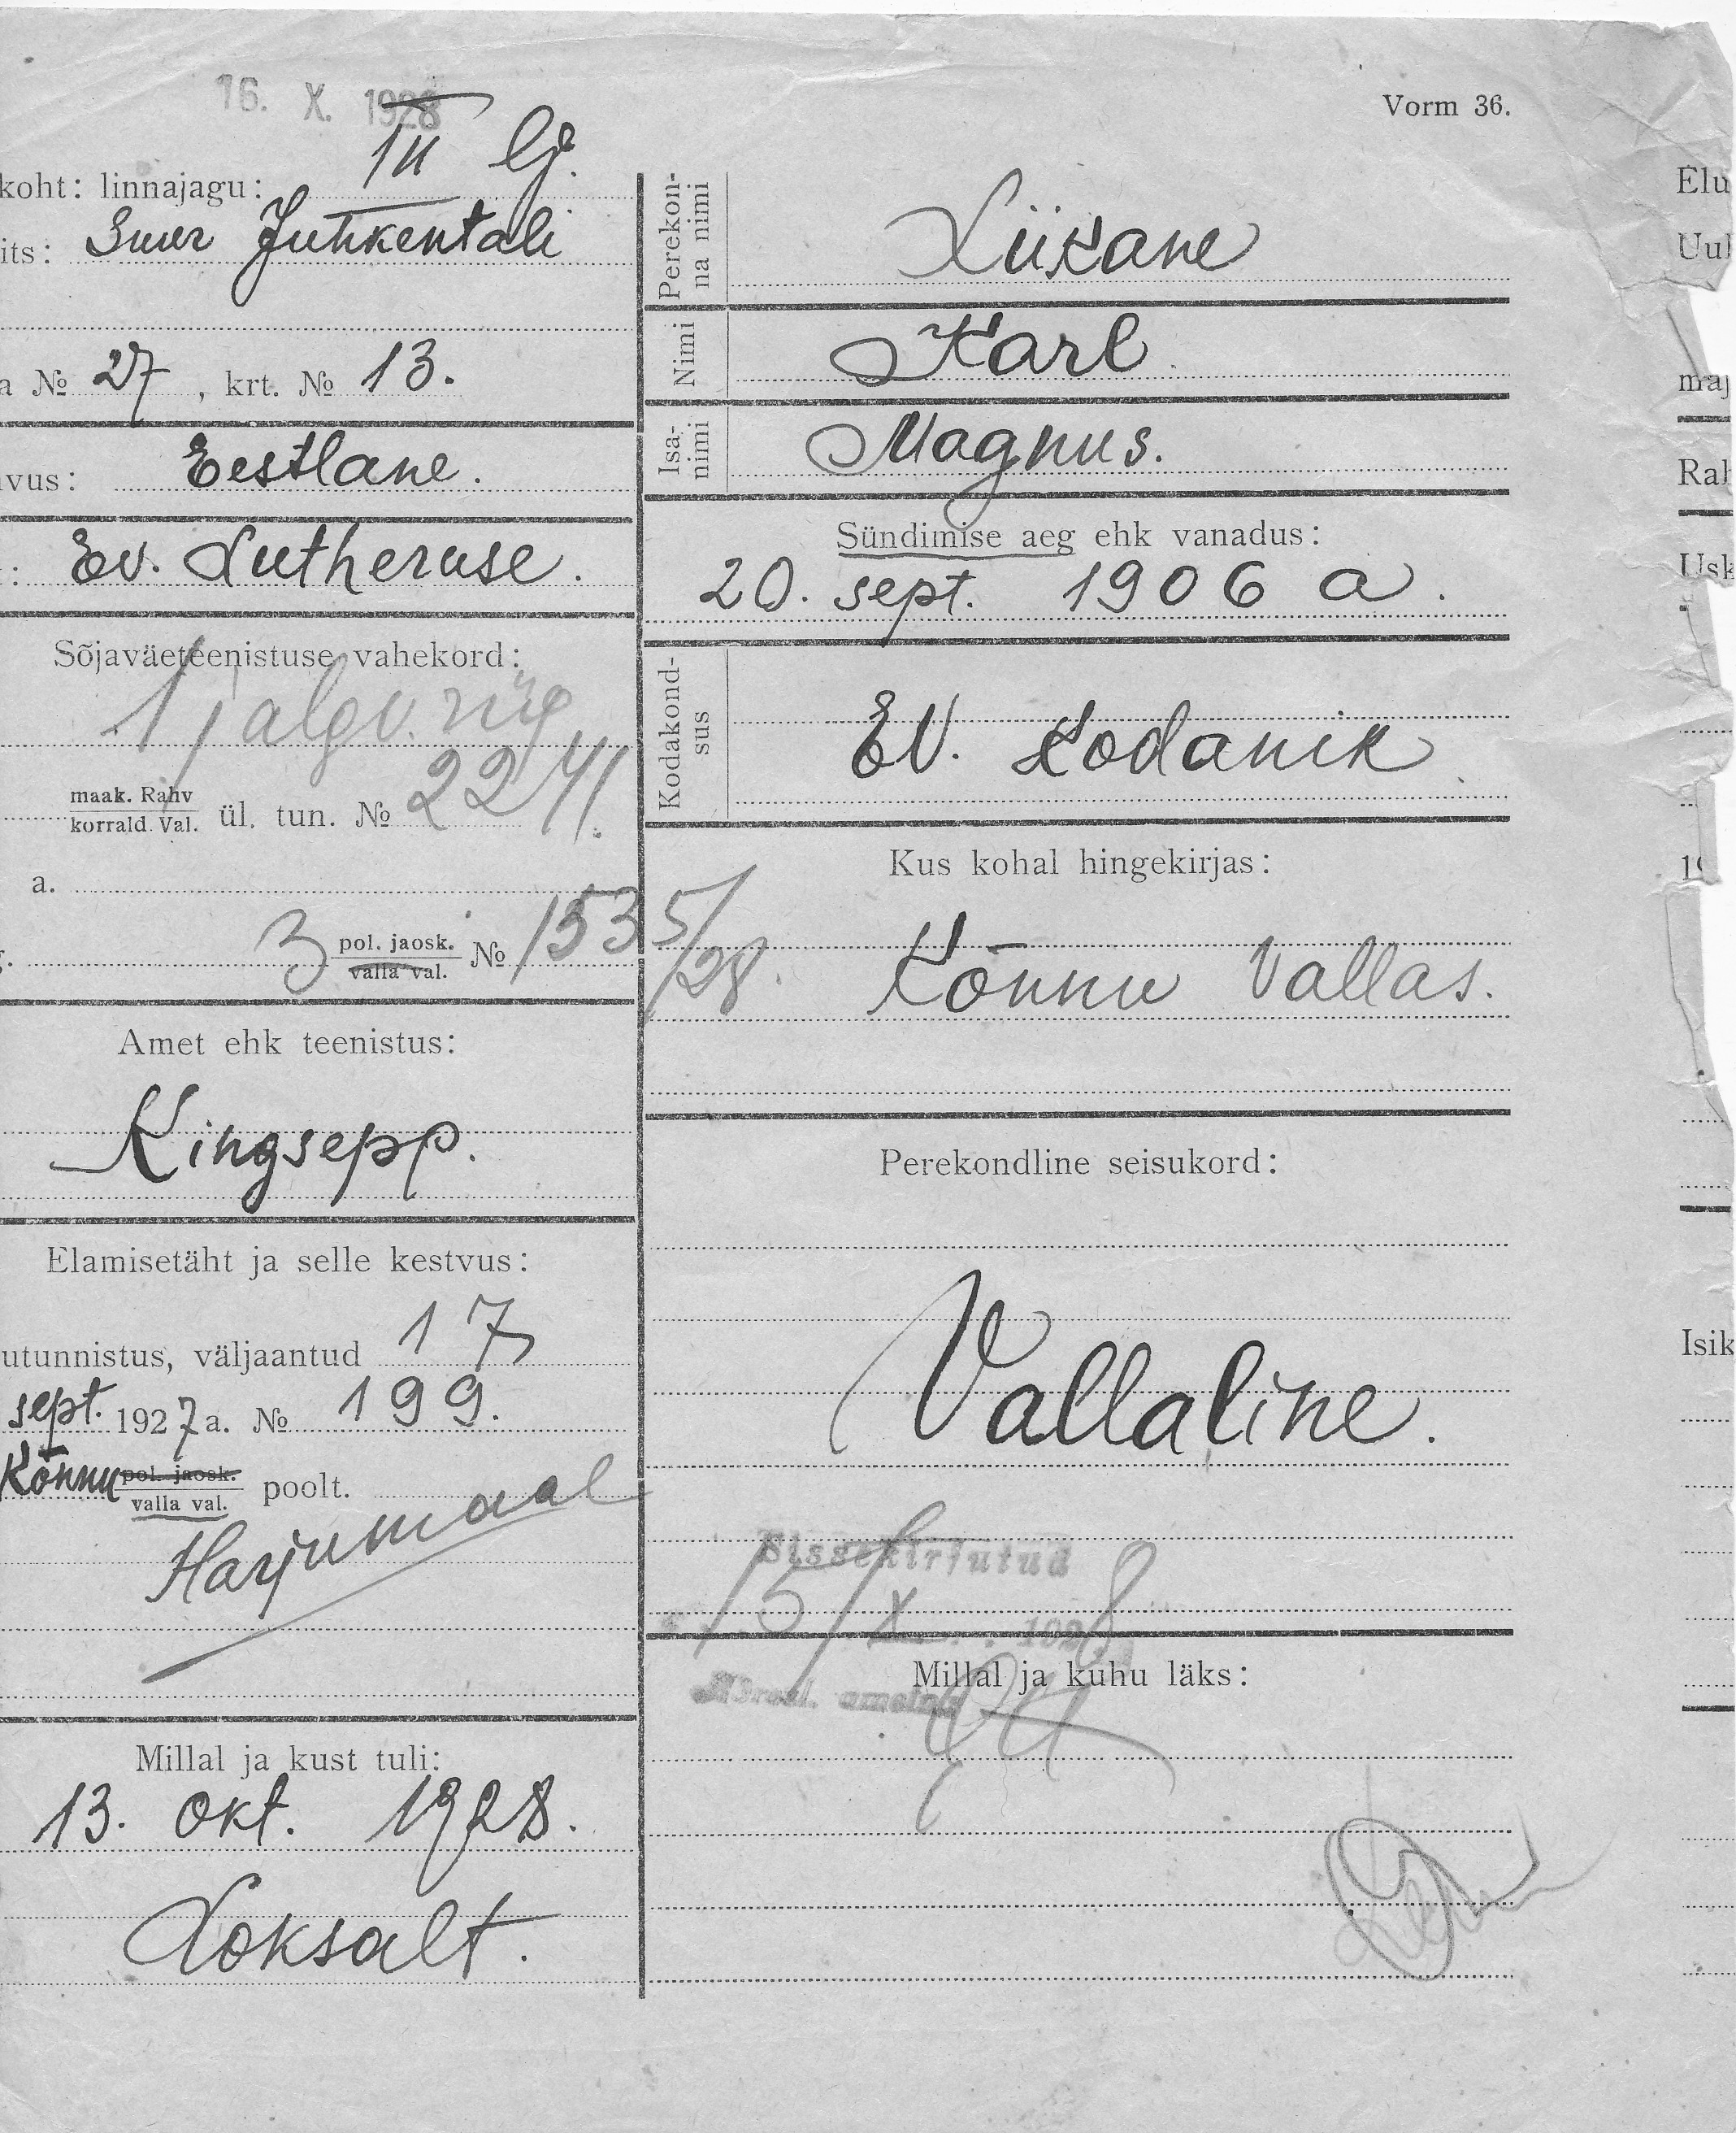 16. X. 1928
Vorm 36.
koht: linnajagu: III lj.
its: Suur Juhkentali
a № 27, krt. № 13.
vus: Eestlane.
: Ev. Lutheruse.
Sõjaväeteenistuse vahekord:
1 jalgv. rüg
maak. Rahv
korrald. Val. ül. tun. № 2241.
a.
3 pol. jaosk. № 1535/28.
valla val.
Amet ehk teenistus:
Kingsepp.
Elamisetäht ja selle kestvus:
utunnistus, väljaantud 17
sept. 1927 a. № 199.
Kõnnu pol. jaosk.
valla val. poolt.
Harjumaal
Millal ja kust tuli:
13. okt. 1928.
Loksalt.
Perekon-
na nimi
Liikane
Nimi
Karl
Isa-
nimi
Magnus.
Sündimise aeg ehk vanadus:
20. sept. 1906 a.
Kodakond-
sus
EV. Kodanik
Kus kohal hingekirjas:
Kõnnu Vallas.
Perekondline seisukord:
Vallaline.
Sissekirjutud
15/X 1928
Millal ja kuhu läks:
Elu
Uul
maj
Ral
Usk
19
Isik